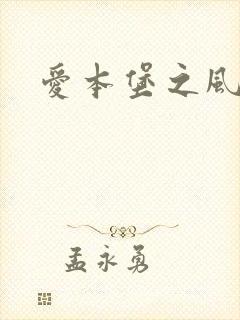 愛本堡之風
孟永勇